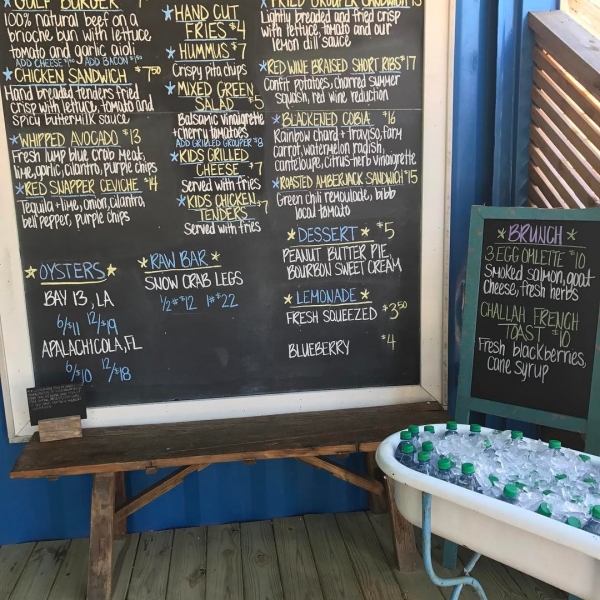 GULF BURGER 7
100% natural beef on a
brioche bun with lettuce
tomato and garlic aioli
ADD CHEESE ADD BACON
CHICKEN SANDWICH $7.50
Hand breaded tenders fried
crisp with lettuce, tomato and
spicy buttermilk sauce
WHIPPED AVOCADO $13
Fresh lump blue crab meat,
lime, garlic, cilantro, purple chips
RED SNAPPER CEVICHE $14
Tequila + lime, onion, cilantro,
bell pepper, purple chips
HAND CUT
FRIES $4
HUMMUS $7
Crispy pita chips
MIXED GREEN
SALAD $5
Balsamic vinaigrette
+ cherry tomatoes
ADD GRILLED GROUPER $8
KIDS GRILLED
CHEESE $7
Served with fries
KIDS CHICKEN
TENDERS $7
Served with fries
FRIED GROUPER SANDWICH 15
Lightly breaded and fried crisp
with lettuce, tomato and our
lemon dill sauce
RED WINE BRAISED SHORT RIBS $17
Confit potatoes, charred summer
squash, red wine reduction
BLACKENED COBIA $16
Rainbow chard + traviso, fairy
carrot, watermelon radish,
canteloupe, citrus-herb vinaigrette
ROASTED AMBERJACK SANDWICH $15
Green chili remoulade, bibb
local tomato
OYSTERS
BAY 13, LA
6/$11 12/$19
APALACHICOLA, FL
6/$10 12/$18
RAW BAR
SNOW CRAB LEGS
1/2# $12 1# $22
DESSERT $5
PEANUT BUTTER PIE,
BOURBON SWEET CREAM
LEMONADE
FRESH SQUEEZED $3.50
BLUEBERRY $4
BRUNCH
3 EGG OMLETTE $10
Smoked salmon, goat
cheese, fresh herbs
CHALLAH FRENCH
TOAST $10
Fresh blackberries,
cane syrup